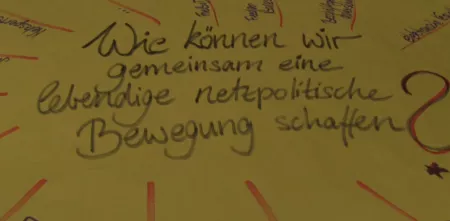 Wie können wir
gemeinsam eine
lebendige netzpolitische
Bewegung schaffen?